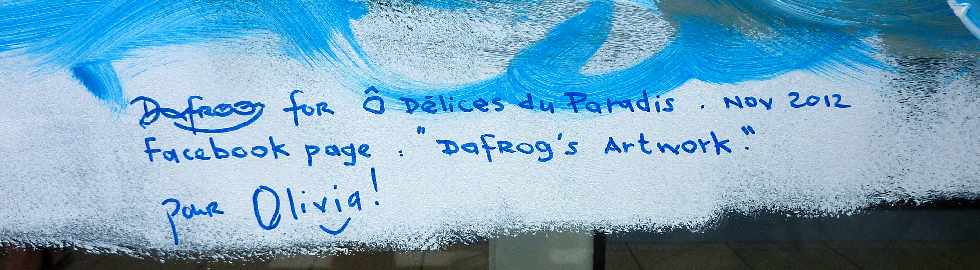 Dafrog for Ô Délices du Paradis. Nov 2012
Facebook page : "Dafrog's Artwork".
pour Olivia!